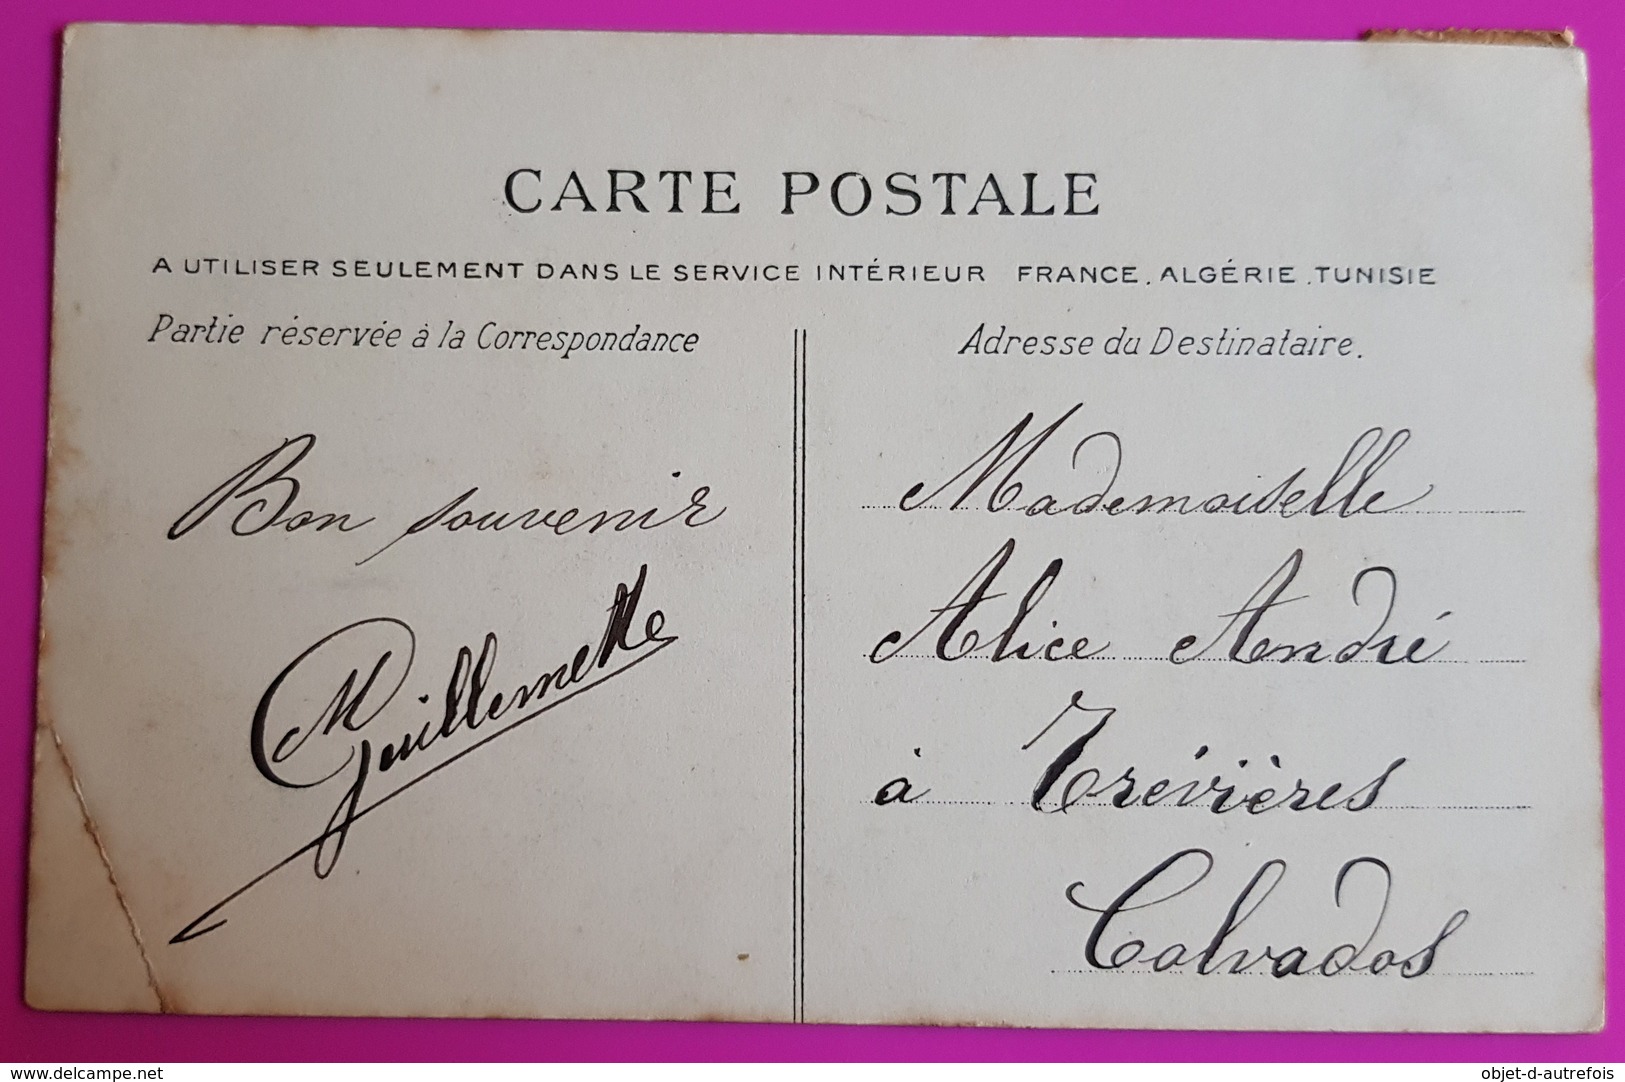 CARTE POSTALE
A UTILISER SEULEMENT DANS LE SERVICE INTÉRIEUR FRANCE, ALGÉRIE, TUNISIE
Partie réservée à la Correspondance
Adresse du Destinataire.
Bon souvenir
M Guillemette
Mademoiselle
Alice André
à Trévières
Calvados
www.delcampe.net
objet-d-autrefois